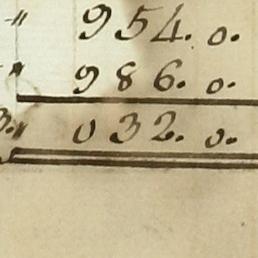 " 954. 0.
" 986. 0.
3." 032. 0.